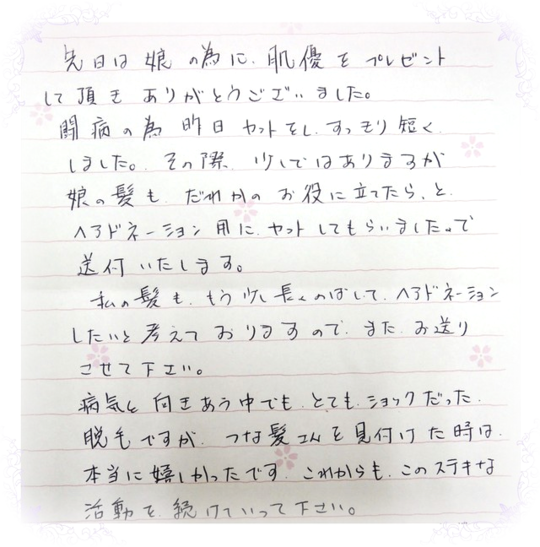 先日は娘の為に、肌優をプレゼント
して頂きありがとうございました。
闘病の為昨日カットをし、すっきり短く
しました。その際、少しではありますが
娘の髪も、だれかのお役に立てたら、と
ヘアドネーション用に、カットしてもらいましたので
送付いたします。
私の髪も、もう少し長くのばして、ヘアドネーション
したいと考えておりますので、また、お送り
させて下さい。
病気と向きあう中でも、とても、ショックだった、
脱毛ですが、つな髪さんを見付けた時は、
本当に嬉しかったです。これからも、このステキな
活動を、続けていって下さい。